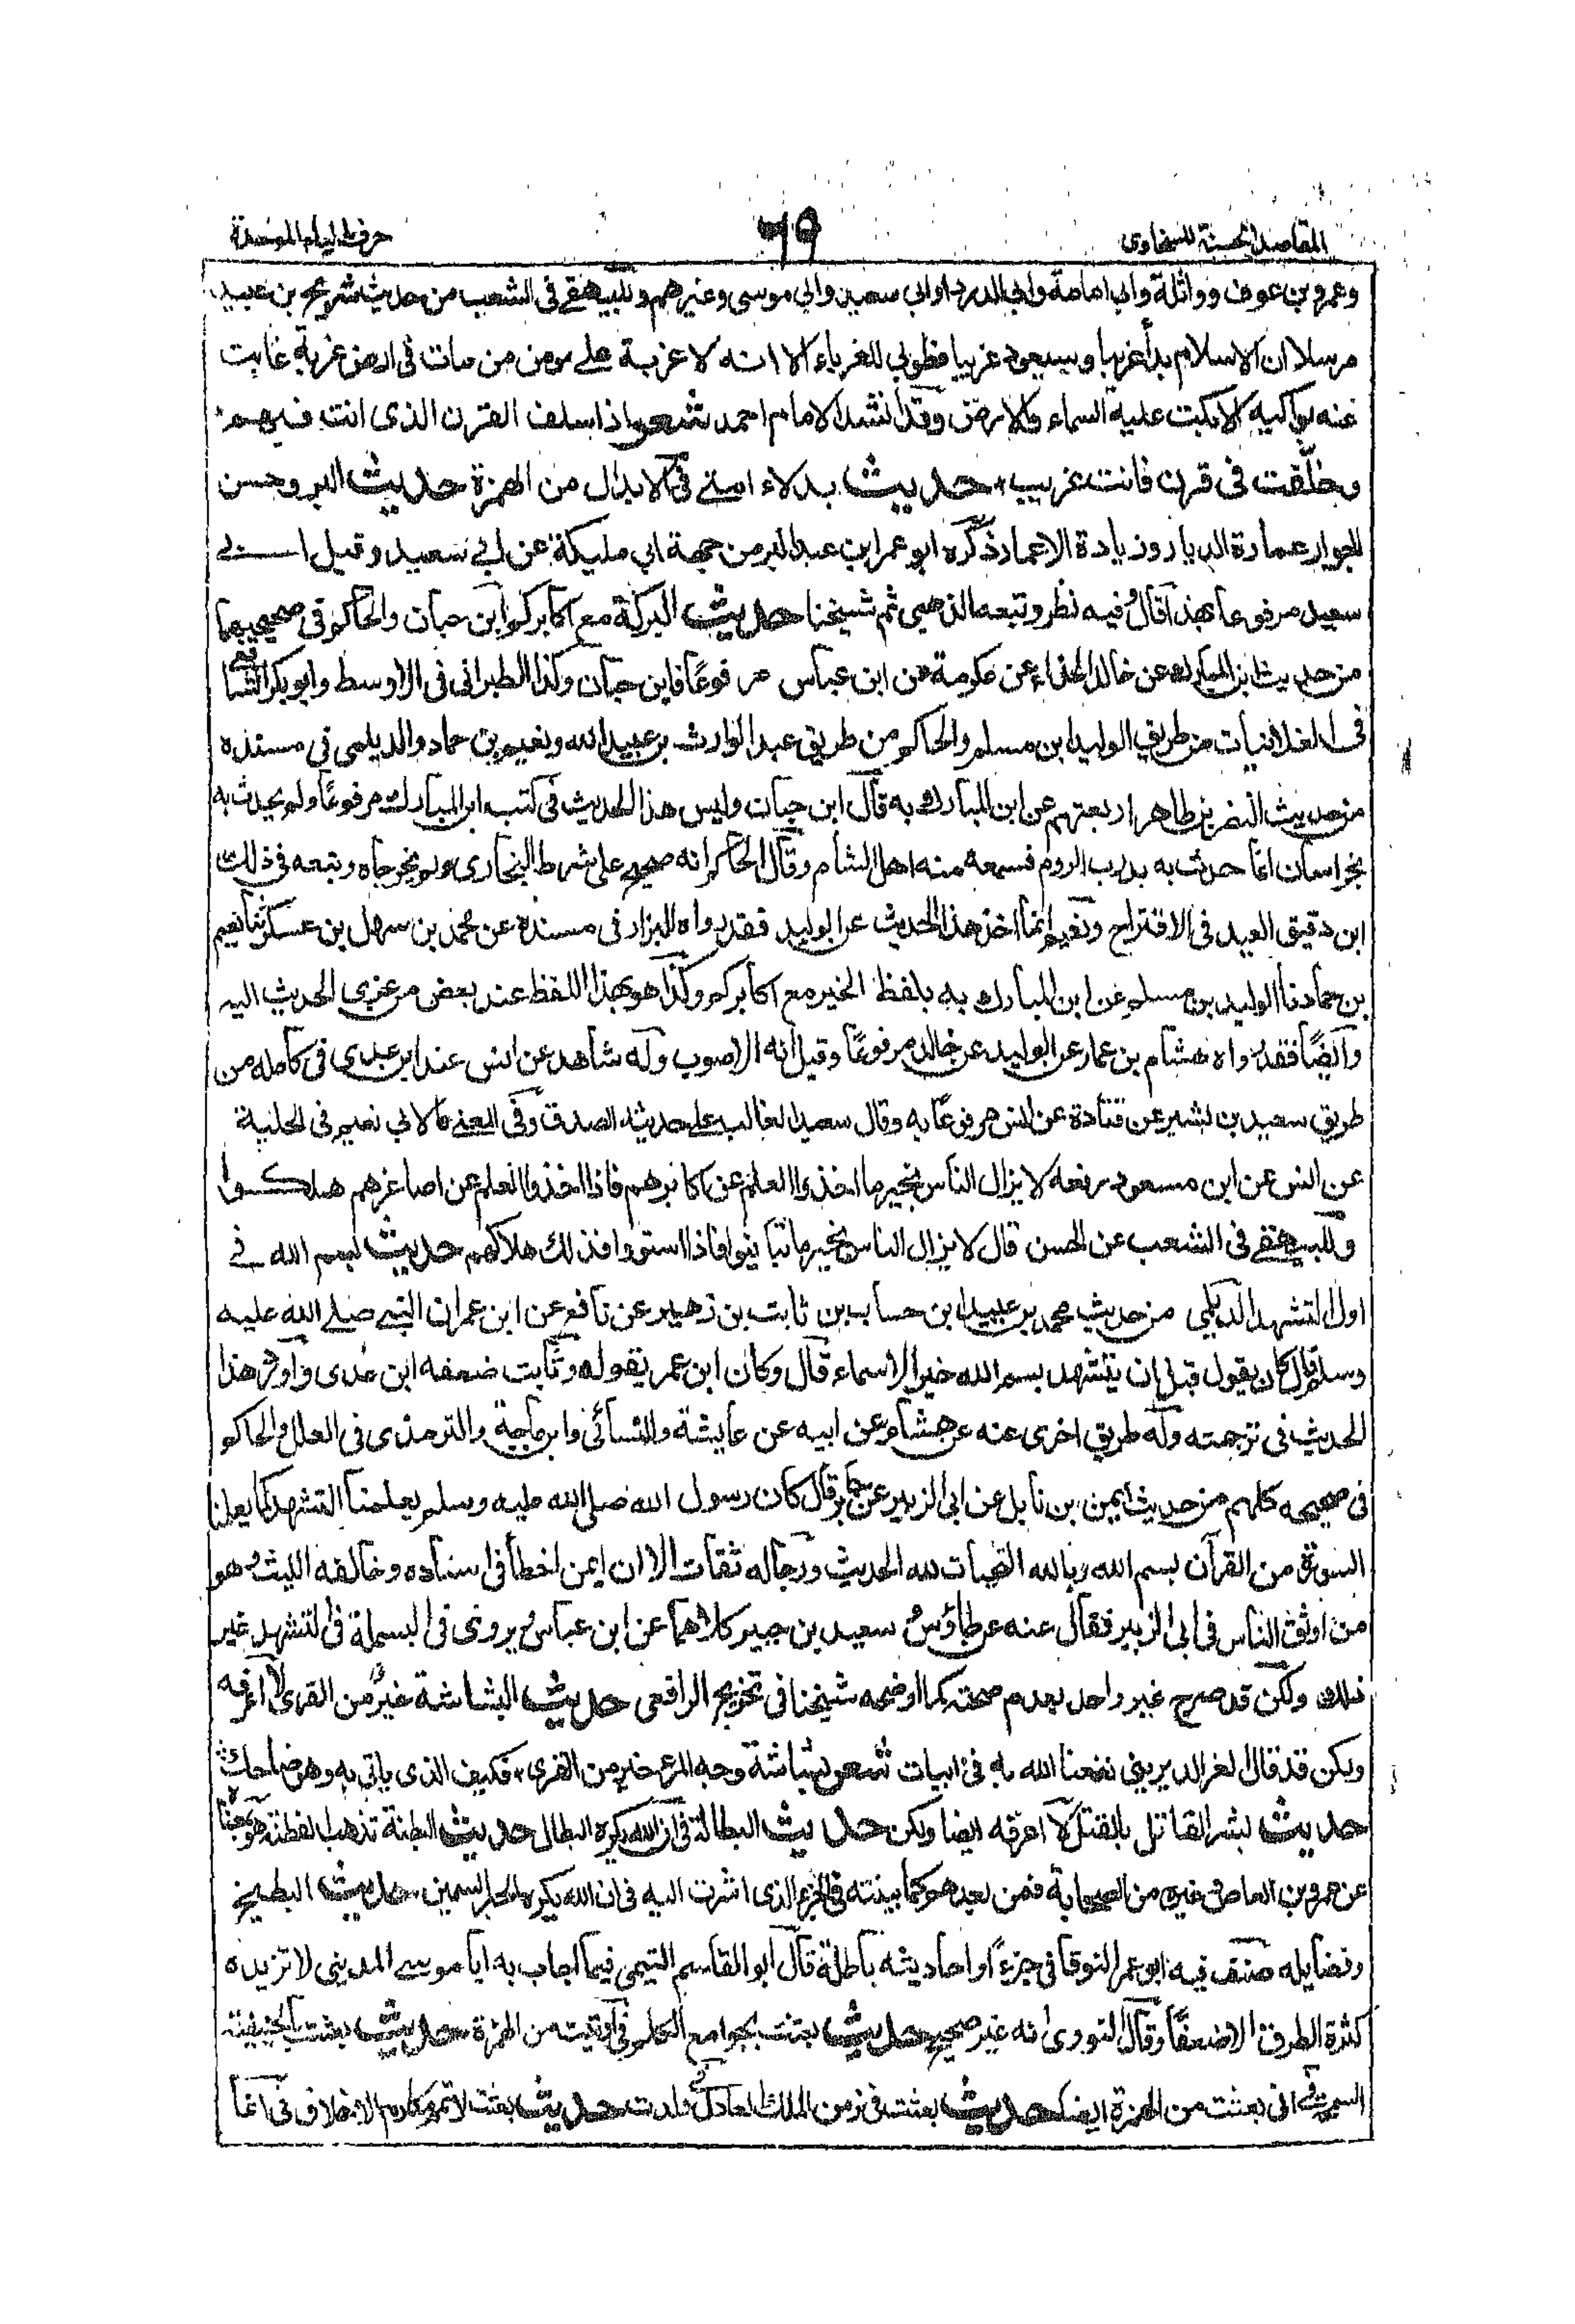 المقاصد الحسنة للسخاوى
٦٩
حرف الباء الموحدة
وعمرو بن عوف وواثلة وابي امامة وابي الدرداء وابي سعيد وابي موسى وغيرهم وللبيهقي في الشعب من حديث شريح بن عبيد
مرسلا ان الاسلام بدأ غريبا وسيعود غريبا فطوبى للغرباء الا انه لا غربة على مومن من مات في ارض غربة غابت
عنه بواكيه الا بكت عليه السماء والارض وقد انشد الامام احمد شعر اذا سلف القرن الذى انت فيهم
وخلّفت فى قرن فانت غريب حديث بدلاء امتي في الابدال من الهمزة حديث البر وحسن
الجوار عمارة الديار وزيادة الاعمار ذكره ابو عمر ابن عبد البر من جهة ابي مليكة عن ابي سعيد وقيل ابي
سعيد مرفوعا بهذا قال وفيه نظر وتبعه الذهبي ثم شيخنا حديث البركة مع اكابركم ابن حبان والحاكم في صحيحيهما
من حديث ابن المبارك عن خالد الحذاء عن عكرمة عن ابن عباس مرفوعًا فابن حبان وكذا الطبراني في الاوسط وابو بكر الشافعي
فى الغيلانيات من طريق الوليد ابن مسلم والحاكم من طريق عبد الوارث بن عبيد الله ونعيم بن حماد والديلمى في مسنده
من حديث النضر بن طاهر اربعتهم عن ابن المبارك به قال ابن حبان وليس هذا الحديث في كتب ابن المبارك مرفوعًا ولم يحدث به
بخراسان انما حدث به بدرب الروم فسمعه منه اهل الشام وقال الحاكم انه صحيح على شرط البخارى ولم يخرجاه وتبعه في ذلك
ابن دقيق العيد في الاقتراح ونعيم انما اخذ هذا الحديث عن الوليد فقد رواه البزار في مسنده عن محمد بن سهل بن عسكر ثنا نعيم
بن حماد ثنا الوليد بن مسلم عن ابن المبارك به بلفظ الخير مع اكابركم وكذا هو بهذا اللفظ عند بعض من عزى الحديث اليه
وايضًا فقد رواه هشام بن عمار عن الوليد عن خالد مرفوعًا وقيل انه الاصوب وله شاهد عن انس عند ابن عدى في كامله من
طريق سعيد بن بشير عن قتادة عن انس مرفوعًا به وقال سعيد الغالب على حديثه الصدق وفي المعنى ما لابي نعيم في الحلية
عن انس عن ابن مسعود رفعه لا يزال الناس بخير ما اخذوا العلم عن اكابرهم فاذا اخذوا العلم عن اصاغرهم هلكوا
وللبيهقي في الشعب عن الحسن قال لا يزال الناس بخير ما تباينوا فاذا استووا فذلك هلاكهم حديث بسم الله في
اول التشهد الديلمي من حديث محمد بن عبيد ابن حساب بن ثابت بن زهير عن نافع عن ابن عمر ان النبي صلى الله عليه
وسلم قال كان يقول قبل ان يتشهد بسم الله خير الاسماء قال وكان ابن عمر يقوله وثابت ضعفه ابن عدى واورد هذا
الحديث في ترجمته وله طريق اخرى عنه عن هشام عن ابيه عن عايشة والنسائى وابن ماجة والترمذى في العلل والحاكم
فى صحيحه كلهم من حديث ايمن بن نابل عن ابي الزبير عن جابر قال كان رسول الله صلى الله عليه وسلم يعلمنا التشهد كما يعلمنا
السورة من القرآن بسم الله وبالله التحيات لله الحديث ورجاله ثقات الا ان ايمن اخطأ في اسناده وخالفه الليث وهو
من اوثق الناس في ابي الزبير فقال عنه عن طاؤس وسعيد بن جبير كلاهما عن ابن عباس ويروى في البسملة في التشهد غير
ذلك ولكن قد صرح غير واحد بعدم صحته كما اوضحه شيخنا في تخريج الرافعى حديث البشاشة خير من القرى لا اعرفه
ولكن قد قال العز الديرينى نفعنا الله به في ابيات شعر بشاشة وجه المرء خير من القرى فكيف الذى ياتي به وهو ضاحك
حديث بشر القاتل بالقتل لا اعرفه ايضا ولكن حديث البطالة في ان الله يكره البطال حديث البطنة تذهب الفطنة هو بمعناه
عن عمرو بن العاص وغيره من الصحابة فمن بعدهم كما بينته في الجزء الذى اشرت اليه في ان الله يكره الحبر السمين حديث البطيخ
وفضايله صنف فيه ابو عمر النوقاني جزءًا واحاديثه باطلة قال ابو القاسم التيمي فيما اجاب به ابا موسى المديني لا تزيده
كثرة الطرق الا ضعفًا وقال النووى انه غير صحيح حديث بعثت بجوامع الكلم في اوتيت من الهمزة حديث بعثت بالحنيفية
السمحة في انى بعثت من الهمزة ايضا حديث بعثت في زمن الملك العادل في ولدت حديث بعثت لاتمم مكارم الاخلاق في انما